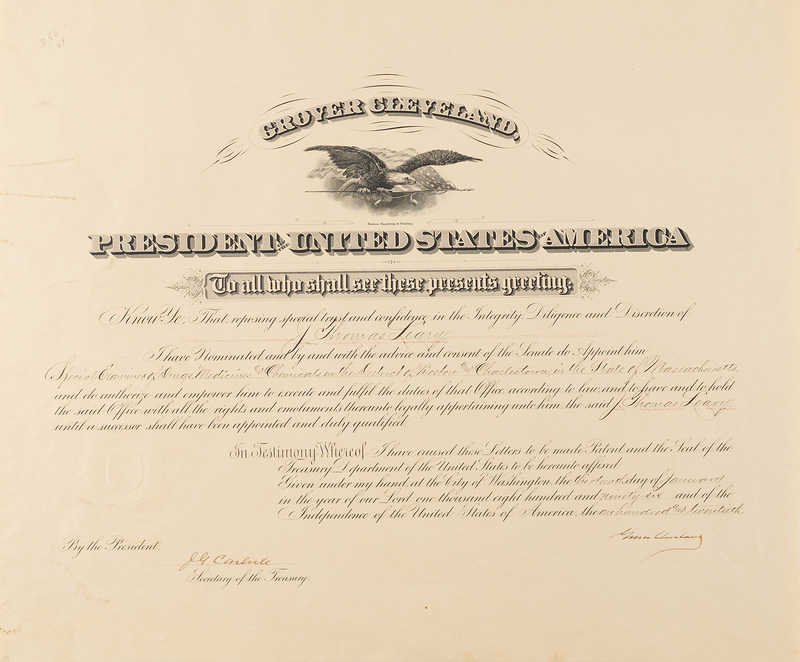 GROVER CLEVELAND,
PRESIDENT OF THE UNITED STATES OF AMERICA
To all who shall see these presents greeting:
Know Ye, That, reposing special trust and confidence in the Integrity, Diligence and Discretion of
J. Thomas Leary
I have Nominated and by and with the advice and consent of the Senate do Appoint him
Special Examiner of Drugs, Medicines and Chemicals in the District of Boston and Charlestown, in the State of Massachusetts
and do authorize and empower him to execute and fulfil the duties of that Office according to law, and to have and to hold
the said Office with all the rights and emoluments thereunto legally appertaining unto him, the said J. Thomas Leary,
until a successor shall have been appointed and duly qualified.
In Testimony Whereof, I have caused these Letters to be made Patent and the Seal of the
Treasury Department of the United States to be hereunto affixed.
Given under my hand, at the City of Washington, the day of January
in the year of our Lord one thousand eight hundred and ninety six and of the
Independence of the United States of America, the one hundred and twentieth.
Grover Cleveland
By the President:
J. G. Carlisle
Secretary of the Treasury.